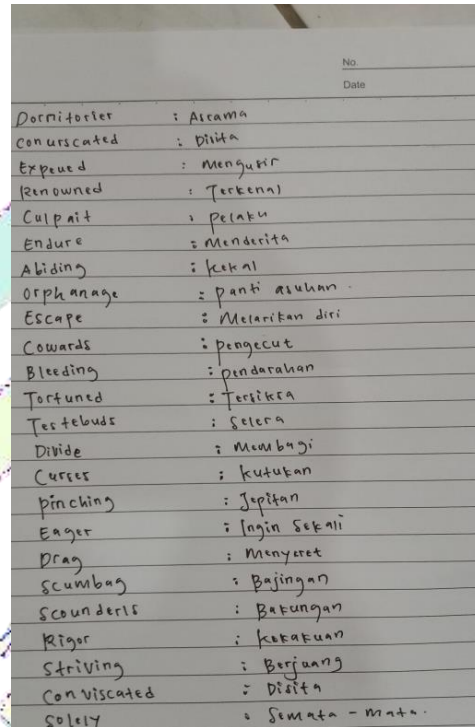 No.
Date
Dormitorier : Ascama
Conurscated : Disita
Expeued : Mengusir
Renowned : Terkenal
Culpait : pelaku
Endure : Menderita
Abiding : kekal
Orphanage : panti asuhan.
Escape : Melarikan diri
Cowards : pengecut
Bleeding : pendarahan
Tortuned : Tersiksa
Testebuds : Selera
Divide : Membagi
Curses : kutukan
pinching : Jepitan
Eager : Ingin Sekali
Drag : Menyeret
Scumbag : Bajingan
Scounderls : Bakungan
Rigor : kekakuan
Striving : Berjuang
Conviscated : Disita
Solely : Semata - mata.